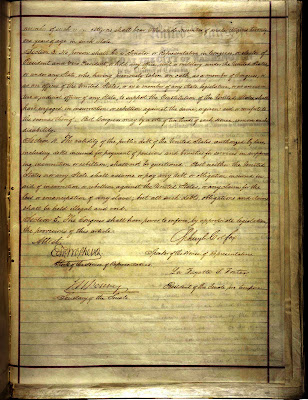 number of such male citizens shall bear to the whole number of male citizens twenty
one years of age in such State.
Section 3. No person shall be a Senator or Representative in Congress, or elector of
President and Vice President, or hold any office, civil or military, under the United States,
or under any State, who, having previously taken an oath, as a member of Congress, or
as an officer of the United States, or as a member of any State legislature, or as an execu-
tive or judicial officer of any State, to support the Constitution of the United States, shall
have engaged in insurrection or rebellion against the same, or given aid or comfort to
the enemies thereof. But Congress may by a vote of two thirds of each House, remove such
disability.
Section 4. The validity of the public debt of the United States, authorized by law,
including debts incurred for payment of pensions and bounties for services in suppress-
ing insurrection or rebellion, shall not be questioned. But neither the United
States nor any State shall assume or pay any debt or obligation incurred in
aid of insurrection or rebellion against the United States, or any claim for the
loss or emancipation of any slave; but all such debts, obligations and claims
shall be held illegal and void.
Section 5. The Congress shall have power to enforce, by appropriate legislation,
the provisions of this article.
Attest.
Schuyler Colfax
Speaker of the House of Representatives.
Clerk of the House of Representatives.
La Fayette S. Foster
President of the Senate pro tempore.
Secretary of the Senate